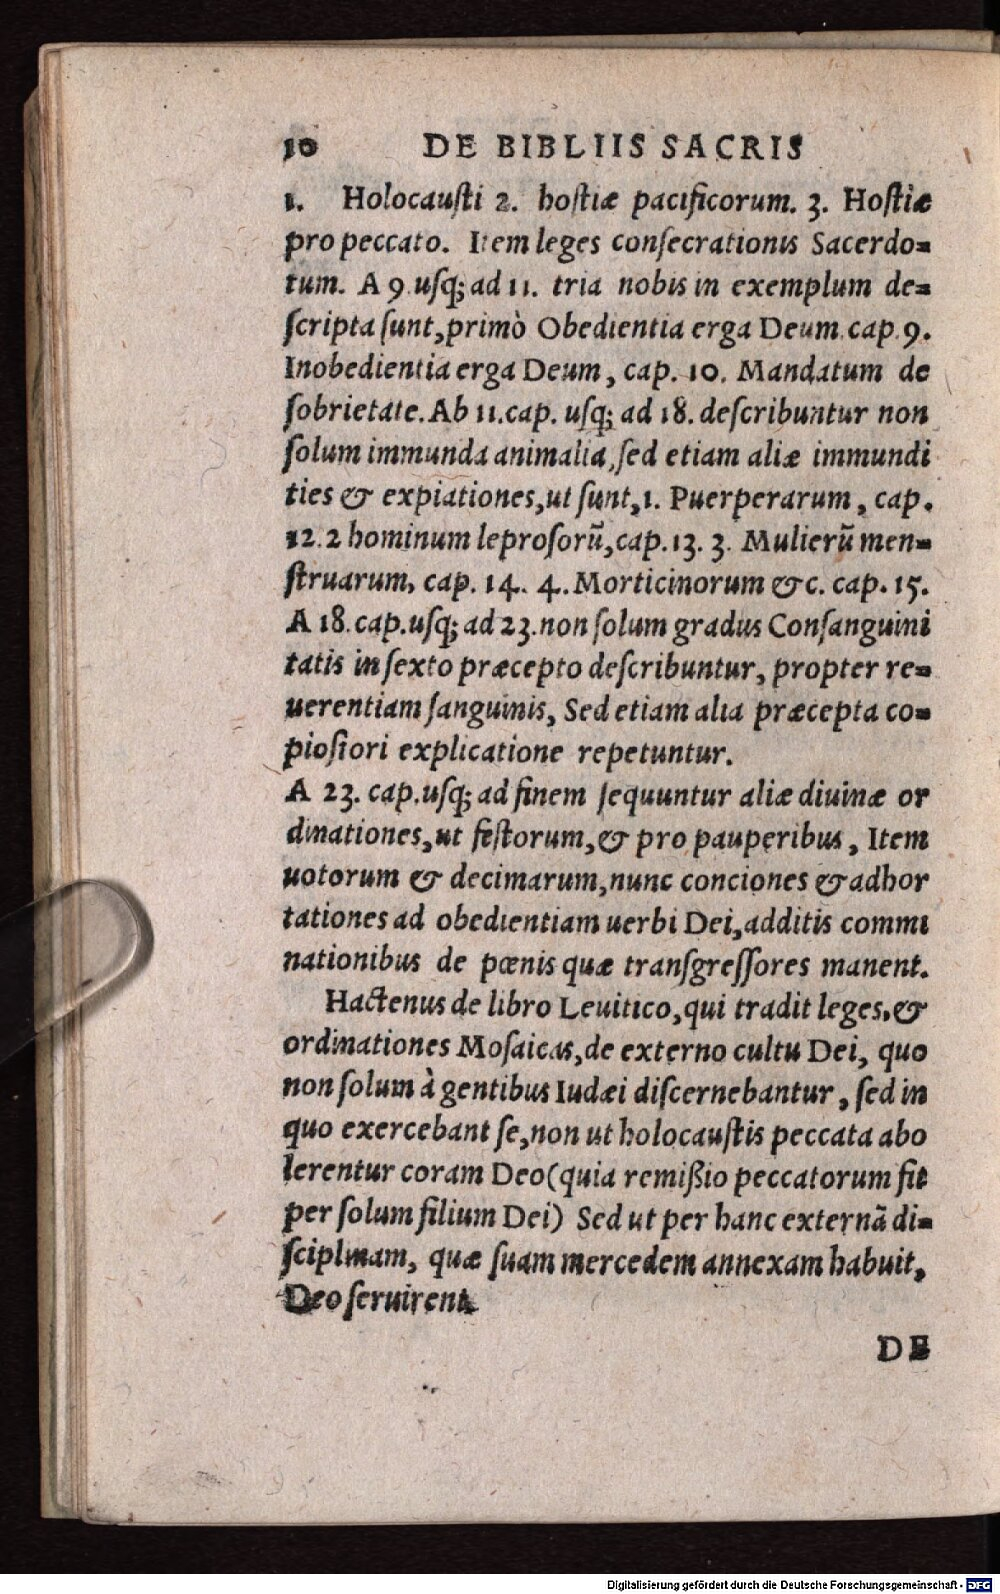 10 DE BIBLIIS SACRIS
1. Holocauſti 2. hoſtiæ pacificorum. 3. Hoſtiæ
pro peccato. Item leges conſecrationis Sacerdo=
tum. A 9 uſq; ad 11. tria nobis in exemplum de=
ſcripta ſunt, primò Obedientia erga Deum cap. 9.
Inobedientia erga Deum, cap. 10. Mandatum de
ſobrietate. Ab 11. cap. uſq; ad 18. deſcribuntur non
ſolum immunda animalia, ſed etiam aliæ immundi
ties & expiationes, ut ſunt, 1. Puerperarum, cap.
12. 2 hominum leproſorũ, cap. 13. 3. Mulierũ men=
ſtruarum, cap. 14. 4. Morticinorum &c. cap. 15.
A 18. cap. uſq; ad 23. non ſolum gradus Conſanguini
tatis in ſexto præcepto deſcribuntur, propter re=
uerentiam ſanguinis, Sed etiam alia præcepta co=
pioſiori explicatione repetuntur.
A 23. cap. uſq; ad finem ſequuntur aliæ diuinæ or
dinationes, ut feſtorum, & pro pauperibus, Item
uotorum & decimarum, nunc conciones & adhor
tationes ad obedientiam uerbi Dei, additis commi
nationibus de pœnis quæ tranſgreſſores manent.
Hactenus de libro Leuitico, qui tradit leges, &
ordinationes Moſaicas, de externo cultu Dei, quo
non ſolum à gentibus Iudæi diſcernebantur, ſed in
quo exercebant ſe, non ut holocauſtis peccata abo
lerentur coram Deo (quia remißio peccatorum fit
per ſolum filium Dei) Sed ut per hanc externã di=
ſciplinam, quæ ſuam mercedem annexam habuit,
Deo ſeruirent.
DE
Digitalisierung gefördert durch die Deutsche Forschungsgemeinschaft - DFG